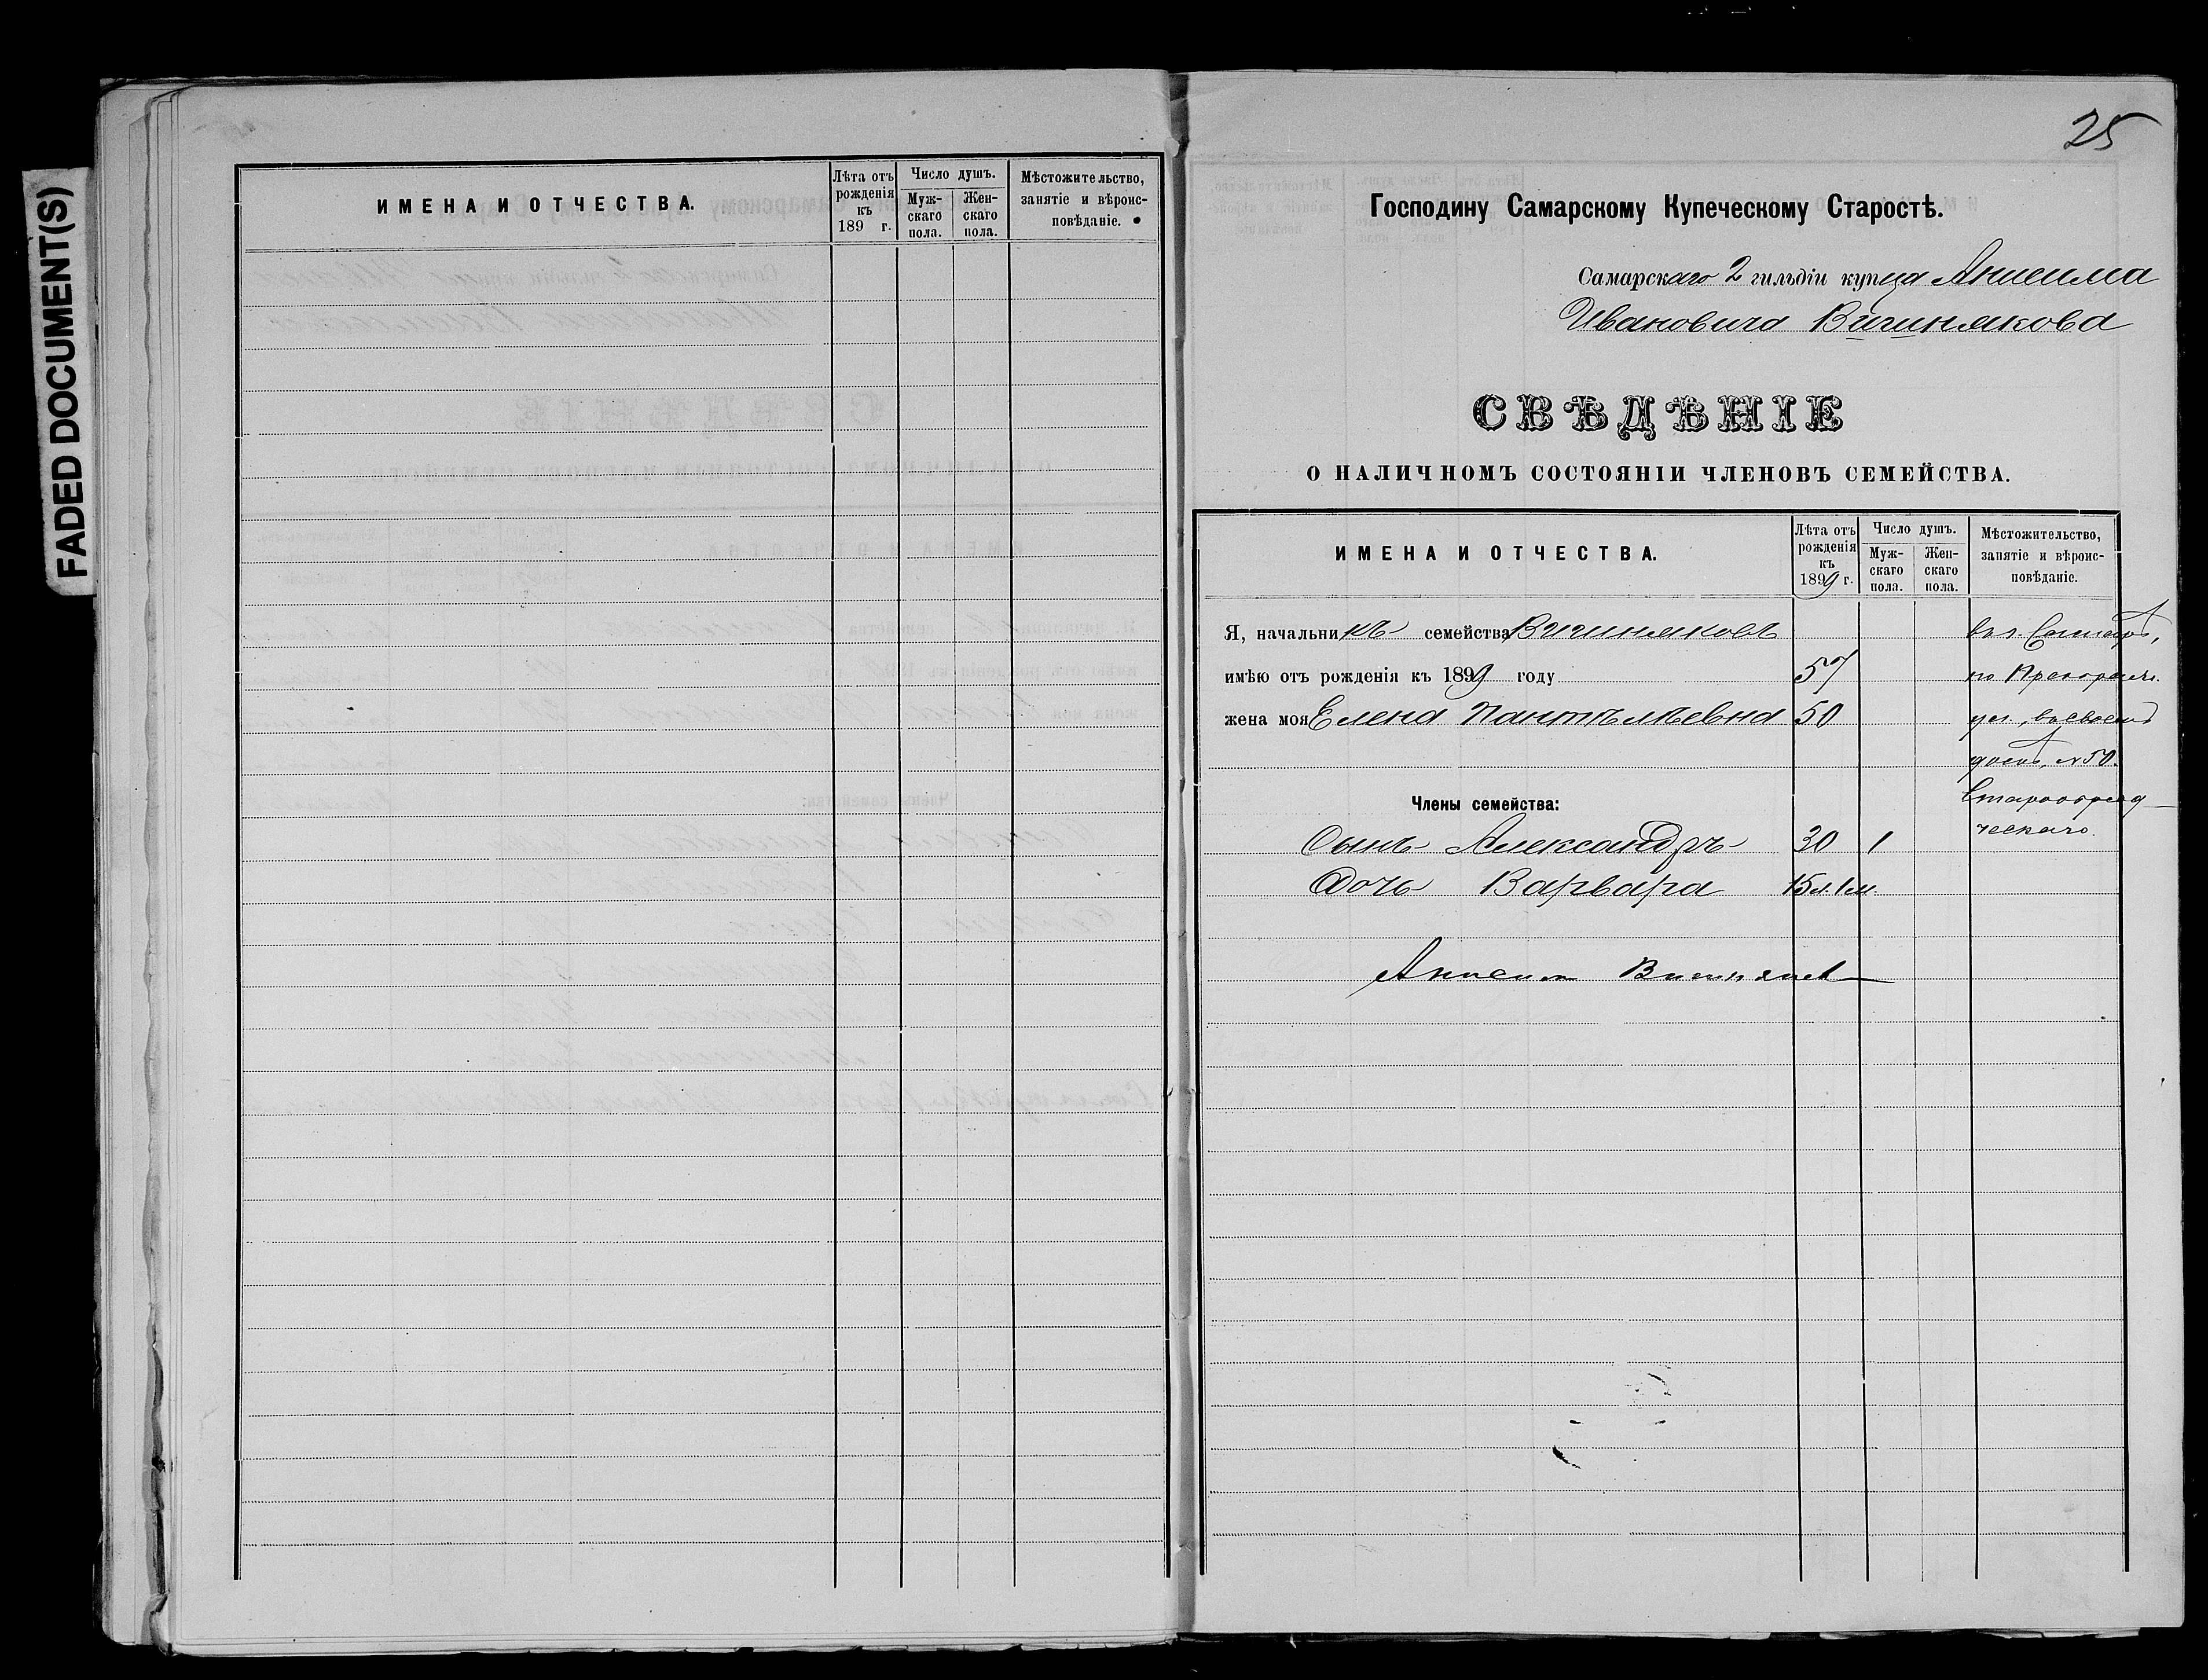 FADED DOCUMENT(S)
ИМЕНА И ОТЧЕСТВА.
Лѣта отъ рожденія къ 189 г.
Число душъ.
Муж-скаго пола.
Жен-скаго пола.
Мѣстожительство, занятіе и вѣроис-повѣданіе.
25
Господину Самарскому Купеческому Старостѣ.
Самарскаго 2 гильдіи купца
Ивановича
СВѢДѢНІЕ
О НАЛИЧНОМЪ СОСТОЯНІИ ЧЛЕНОВЪ СЕМЕЙСТВА.
ИМЕНА И ОТЧЕСТВА.
Лѣта отъ рожденія къ 1899 г.
Число душъ.
Муж-скаго пола.
Жен-скаго пола.
Мѣстожительство, занятіе и вѣроис-повѣданіе.
Я, начальникъ семейства
имѣю отъ рожденія къ 1899 году 57
жена моя Елена 50
домѣ, №50.
Старообряд-
ческаго.
Члены семейства:
Сынъ Александръ 30 1
Дочь Варвара 15 л. 1 м.